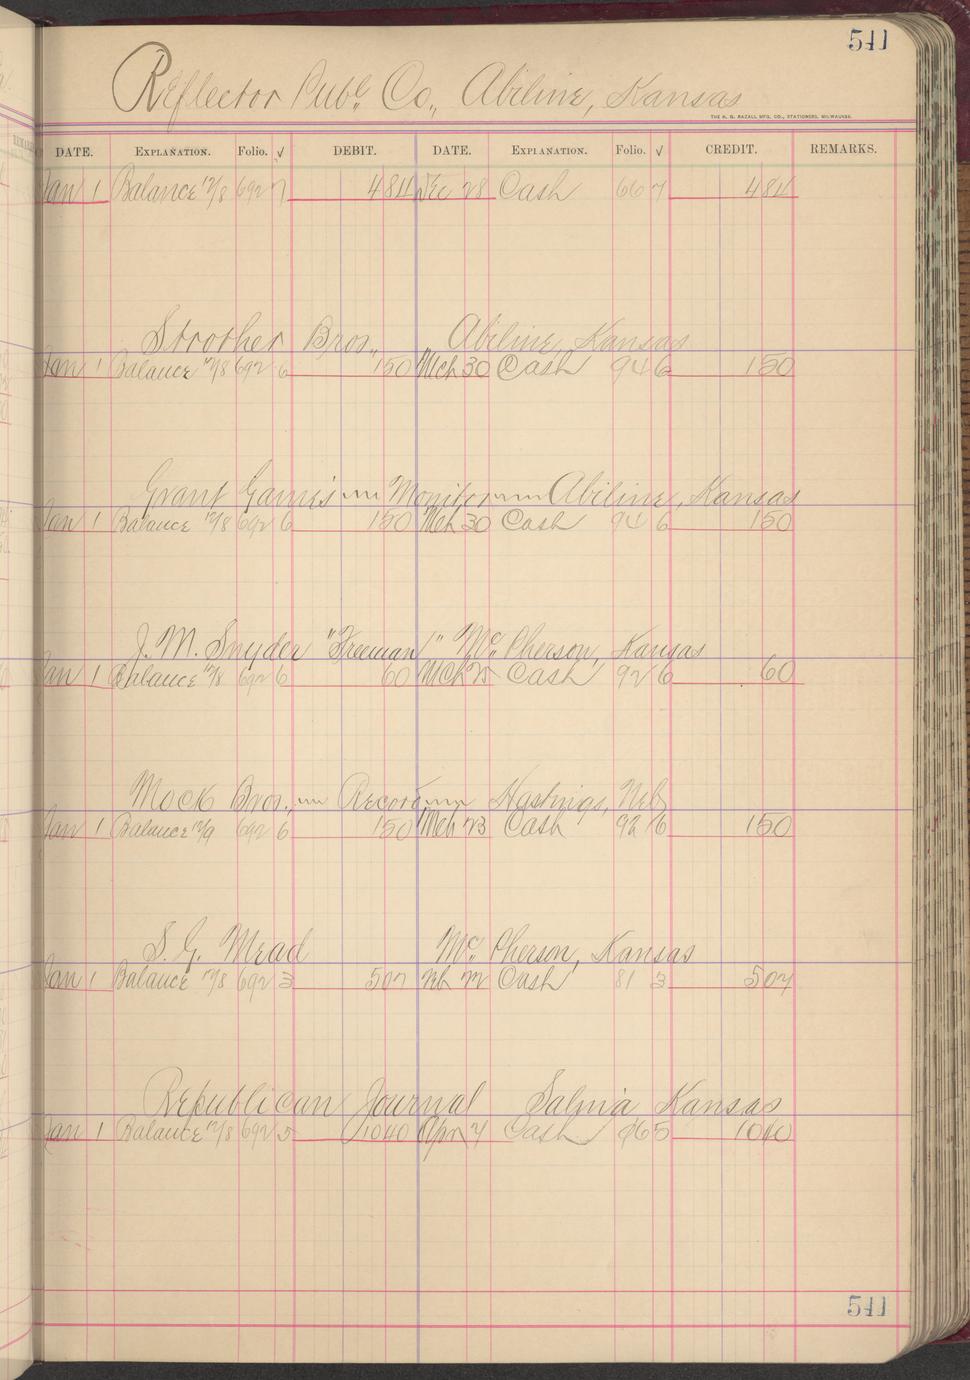 541
Reflector Publ. Co., Abiline, Kansas
THE H. G. RAZALL MFG. CO., STATIONERS, MILWAUKEE.
DATE. EXPLANATION. Folio. √ DEBIT. DATE. EXPLANATION. Folio. √ CREDIT. REMARKS.
Jan 1 Balance 12/8 692 7 484 Dec 28 Cash 66 7 484
Strother Bros., Abiline, Kansas
Jan 1 Balance 12/8 692 6 150 Mch 30 Cash 94 6 150
Grant Gaines Monitor Abiline, Kansas
Jan 1 Balance 12/8 692 6 150 Mch 30 Cash 94 6 150
J. M. Snyder "Freeman" Mc Pherson, Kansas
Jan 1 Balance 12/8 692 6 60 Mch 25 Cash 92 6 60
Mock Bros., Record Hastings, Neb
Jan 1 Balance 12/9 692 6 150 Mch 23 Cash 92 6 150
S. G. Mead Mc Pherson, Kansas
Jan 1 Balance 12/8 692 3 507 Feb 22 Cash 81 3 507
Republican Journal Salina Kansas
Jan 1 Balance 12/8 692 5 1040 Apr 4 Cash 96 5 1040
541